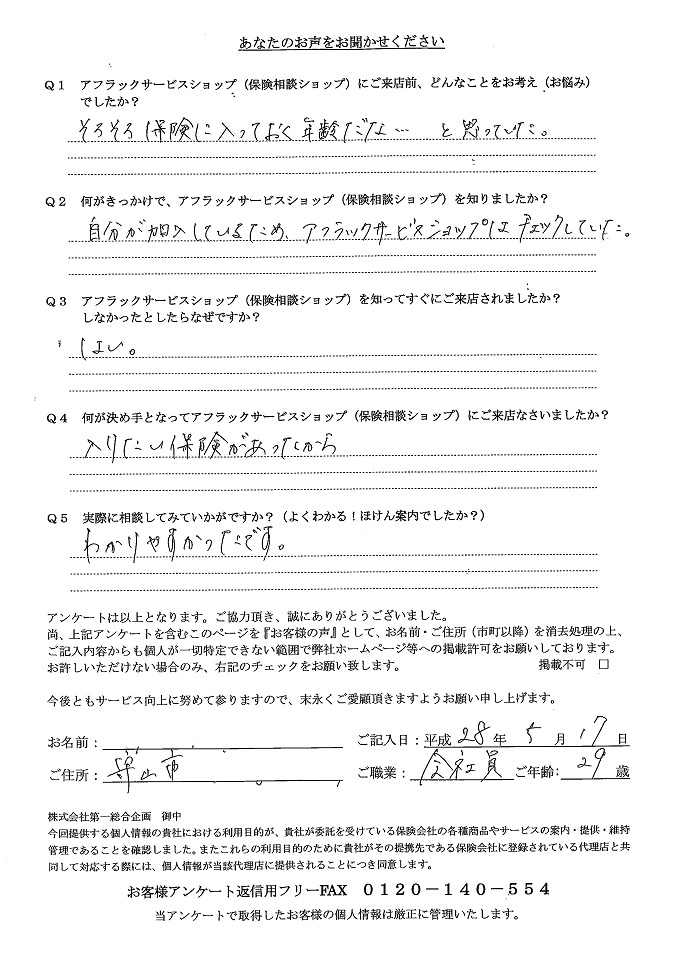 あなたのお声をお聞かせください
Q1 アフラックサービスショップ（保険相談ショップ）にご来店前、どんなことをお考え（お悩み）
でしたか？
そろそろ保険に入っておく年齢だな… と思っていた。
Q2 何がきっかけで、アフラックサービスショップ（保険相談ショップ）を知りましたか？
自分が加入しているため、アフラックサービスショップはチェックしていた。
Q3 アフラックサービスショップ（保険相談ショップ）を知ってすぐにご来店されましたか？
しなかったとしたらなぜですか？
はい。
Q4 何が決め手となってアフラックサービスショップ（保険相談ショップ）にご来店なさいましたか？
入りたい保険があったから
Q5 実際に相談してみていかがですか？（よくわかる！ほけん案内でしたか？）
わかりやすかったです。
アンケートは以上となります。ご協力頂き、誠にありがとうございました。
尚、上記アンケートを含むこのページを『お客様の声』として、お名前・ご住所（市町以降）を消去処理の上、
ご記入内容からも個人が一切特定できない範囲で弊社ホームページ等への掲載許可をお願いしております。
お許しいただけない場合のみ、右記のチェックをお願い致します。 掲載不可 □
今後ともサービス向上に努めて参りますので、末永くご愛顧頂きますようお願い申し上げます。
お名前： ご記入日：平成 28 年 5 月 17 日
ご住所： 守山市 ご職業： 会社員 ご年齢： 29 歳
株式会社第一総合企画 御中
今回提供する個人情報の貴社における利用目的が、貴社が委託を受けている保険会社の各種商品やサービスの案内・提供・維持
管理であることを確認しました。またこれらの利用目的のために貴社がその提携先である保険会社に登録されている代理店と共
同して対応する際には、個人情報が当該代理店に提供されることにつき同意します。
お客様アンケート返信用フリーFAX 0120－140－554
当アンケートで取得したお客様の個人情報は厳正に管理いたします。